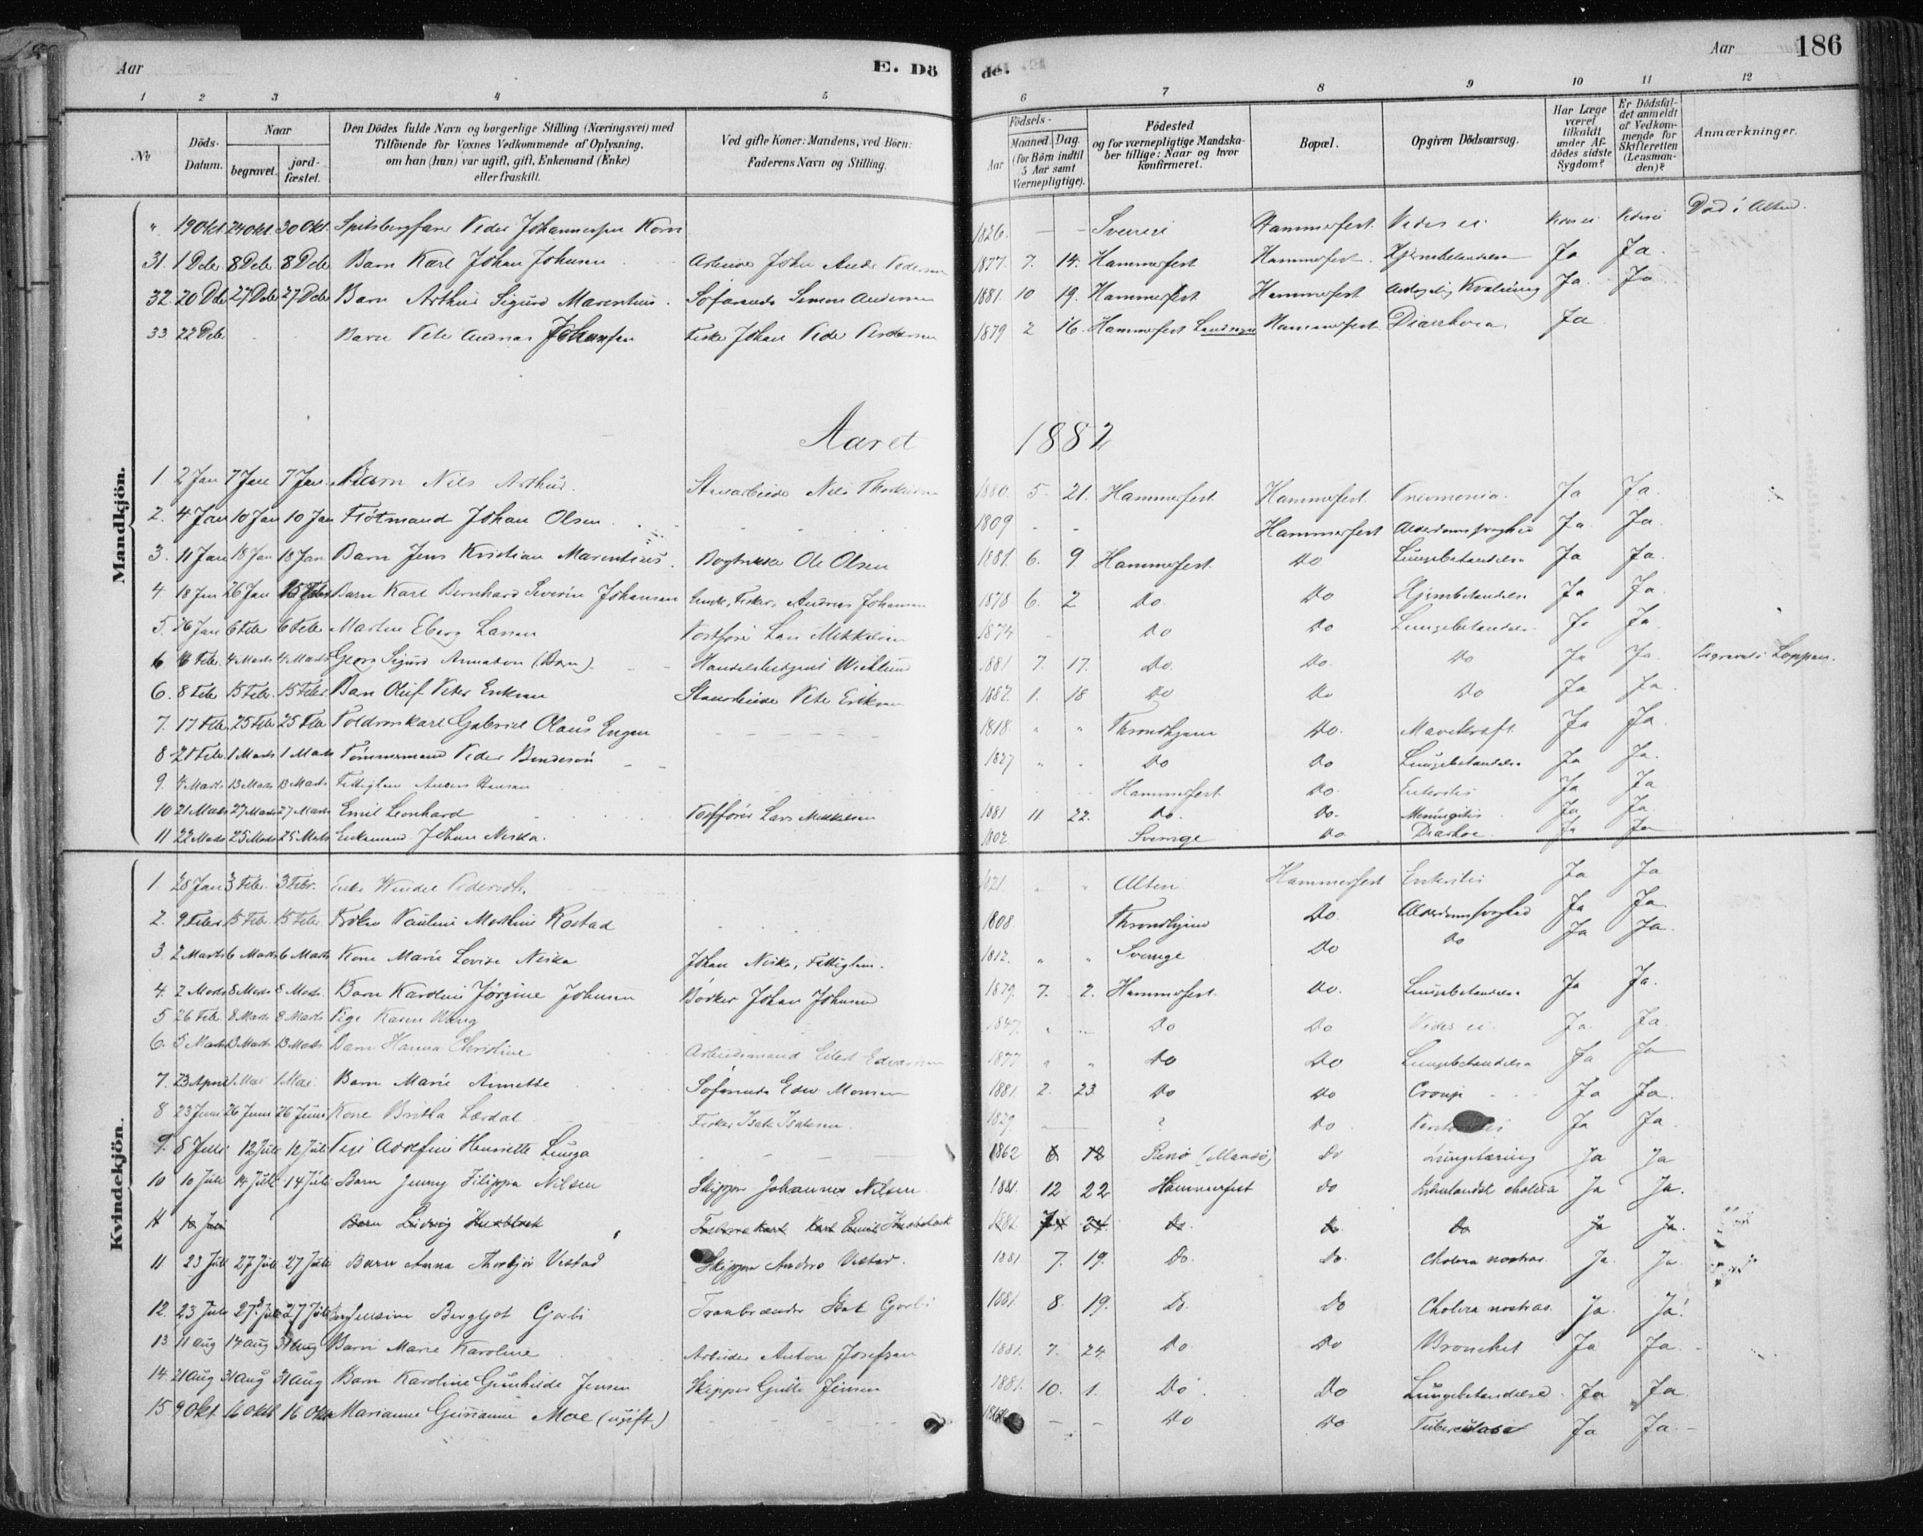 Aar E. Dö de. Aar 186
1 2 3 4 5 6 7 8 9 10 11 12
No Döds-Datum. Naar begravet. jordfæstet. Den Dödes fulde Navn og borgerlige Stilling (Næringsvei) med Tilföiende for Voxnes Vedkommende af Oplysning, om han (hun) var ugift, gift, Enkemand (Enke) eller fraskilt. Ved gifte Koner: Mandens, ved Börn: Faderens Navn og Stilling. Födsels- Aar Maaned. Dag. (for Börn indtil 5 Aar samt Værnepligtige). Födested og for værnepligtige Mandskaber tillige: Naar og hvor konfirmeret. Bopæl. Opgiven Dödsaarsag. Har Læge været tilkaldt under Afdödes sidste Sygdom? Er Dödsfaldet anmeldt af Vedkommende for Skifteretten (Lensmanden)? Anmærkninger.
Mandkjön.
" 19 Okt 24 Okt. 30 Okt. Spitsbergfarer Peder Johannesen 1826. - - Sverige Hammerfest. Vides ei Vides ei Vides ei Död i Alten.
31. 1 Debr 8 Debr 8 Debr Barn Karl Johan Johnsen Arbeider John Andr. Pedersen 1877. 7. 14. Hammerfest Hammerfest. Hjernebetændelse Ja Ja.
32. 20 Debr 27 Debr 27 Debr Barn Arthur Sigurd Marentius. Simon Andersen 1881. 10 19. Hammerfest Hammerfest Kvælning Ja. Ja
33 22 Debr Barn Peter Andreas Johansen Fisker Johan Peder Pedersen 1879 2 16. Hammerfest Landsogn Hammerfest Diarrhoea. Ja
Aaret 1882
1. 2 Jan 7 Jan 7 Jan. Barn Nils Arthur. Nils 1880. 5. 21. Hammerfest Hammerfest. Pneumonia. Ja Ja.
2. 4 Jan 10 Jan 10 Jan Johan Olsen. 1809 - - Hammerfest Alderdomssvaghed Ja. Ja.
3. 11 Jan 18 Jan 18 Jan. Barn Jens Kristian Marentius. Ole Olsen 1881. 6. 9 Hammerfest. Do Lungebetændelse Ja Ja.
4. 18 Jan 26 Jan 15 Febr Barn Karl Bernhard Severin Johansen Fisker, Andreas Johansen 1878 6. 2 Do. Do Hjernbetændelse Ja Ja.
5. 26 Jan 6 Febr 6 Febr Martin Eberg Larsen Postfører Lars Mikkelsen 1874 - Do Do Lungebetændelse Ja Ja.
6 4 Marts 4 Marts Georg Sigurd (Barn) 1881. 7. 17. Do. Do. Do Ja Ja. Begravet i Loppen.
6. 8 Febr 15 Febr. 15 Febr. Barn Oluf Peter Eriksen Peter Eriksen 1882. 1. 18 Do Do Do Ja Ja.
7. 17 Febr 25 Febr 25 Febr Gabriel Olaus Engen 1818. " " Throndhjem Do. Ja Ja.
8 21 Febr. 1 Marts 1 Marts Tömmermand Peder 1827 " " Do Do Lungebetændelse Ja Ja.
9. 4 Marts 13 Marts 13 Marts Fattiglem Hammerfest. Do. Enteritis Ja Ja
10 21 Marts 27 Marts 27 Marts Emil Leonhard Postfører Lars Mikkelsen 1881 11 22. Do. Do. Meningitis Ja Ja.
11 22 Marts 25 Marts 25 Marts Enkemand Johan Niska. 1802 Sverige Do Diarhoe Ja Ja
Kvindekjön.
1. 28 Jan 3 Febr. 3 Febr. Enke Pedersdtr. 1821. " " Alten Hammerfest Enteritis Ja Ja
2. 9 Febr 15 Febr. 15 Febr. Pauline Mathine Rostad 1808. Throndhjem Do Alderdomssvaghed Ja Ja
3 2 Marts 6 Marts 6 Marts Kone Marie Lovise Niska Johan Niska, Fattiglem. 1812. " " Sverige Do Do Ja Ja.
4. 2 Marts 8 Marts 8 Marts. Barn Karoline Jörgine Johnsen Bödker Johan Johnsen 1879. 7. 2. Hammerfest. Do. Lungebetændelse Ja Ja.
5 26 Febr 8 Marts 8 Marts Pige Karen 1847. Do Do Vides ei. Ja. Ja.
6. 5 Marts 13 Marts 13 Marts Barn Hanna Christine Arbeidsmand Eilert 1877 " " Do Do Lungebetændelse Ja Ja
7. 23 April 1 Mai 1 Mai. Barn Marie Annette Monsen 1881. 2. 23. Do Do Croup Ja Ja.
8 23 Juni 26 Juni 26 Juni Kone Britha Lærdal Fisker Isak Isaksen. 1829. ? Do Ja Ja.
9. 8 Juli 12 Juli 12 Juli Pige Adolfine Henriette Lunga 1862 6 12 (Maasö) Do Lungetæring Ja Ja
10 10 Juli 14 Juli 14 Juli Barn Jenny Filippa Nilsen Skipper Johannes Nilsen 1881. 12 22 Hammerfest do cholera Ja Ja.
11 Juli Barn Ludvig Karl Emil Do. Do Do Ja Ja.
11 23 Juli 27 Juli 27 Juli Barn Anna Thorbjør Vestad Skipper Anders Vestad. 1881 7. 19. Do. Do. Cholera nostras. Ja. Ja.
12. 23 Juli 27 Juli 27 Juli Jensine Bergljot Gjæbi Tranbrænder Isak Gjæbi 1881. 8. 19. Do. Do Cholera nostras. Ja. Ja.
13 11 Aug 14 Aug 31 Aug Barn Marie Karoline Arbeider Anton Josefsen 1881. 7. 24 Do. Do Bronchit Ja Ja.
14. 21 Aug 31 Aug 31 Aug Barn Karoline Gunhilde Jensen Skipper Jensen 1881. 10. 1. Do. Do Lungebetændelse. Ja Ja.
15 9 Okt. 16 Oktb 16 Okt Marianne Moe (ugift) - - Do Do Tuberculose Ja Ja.